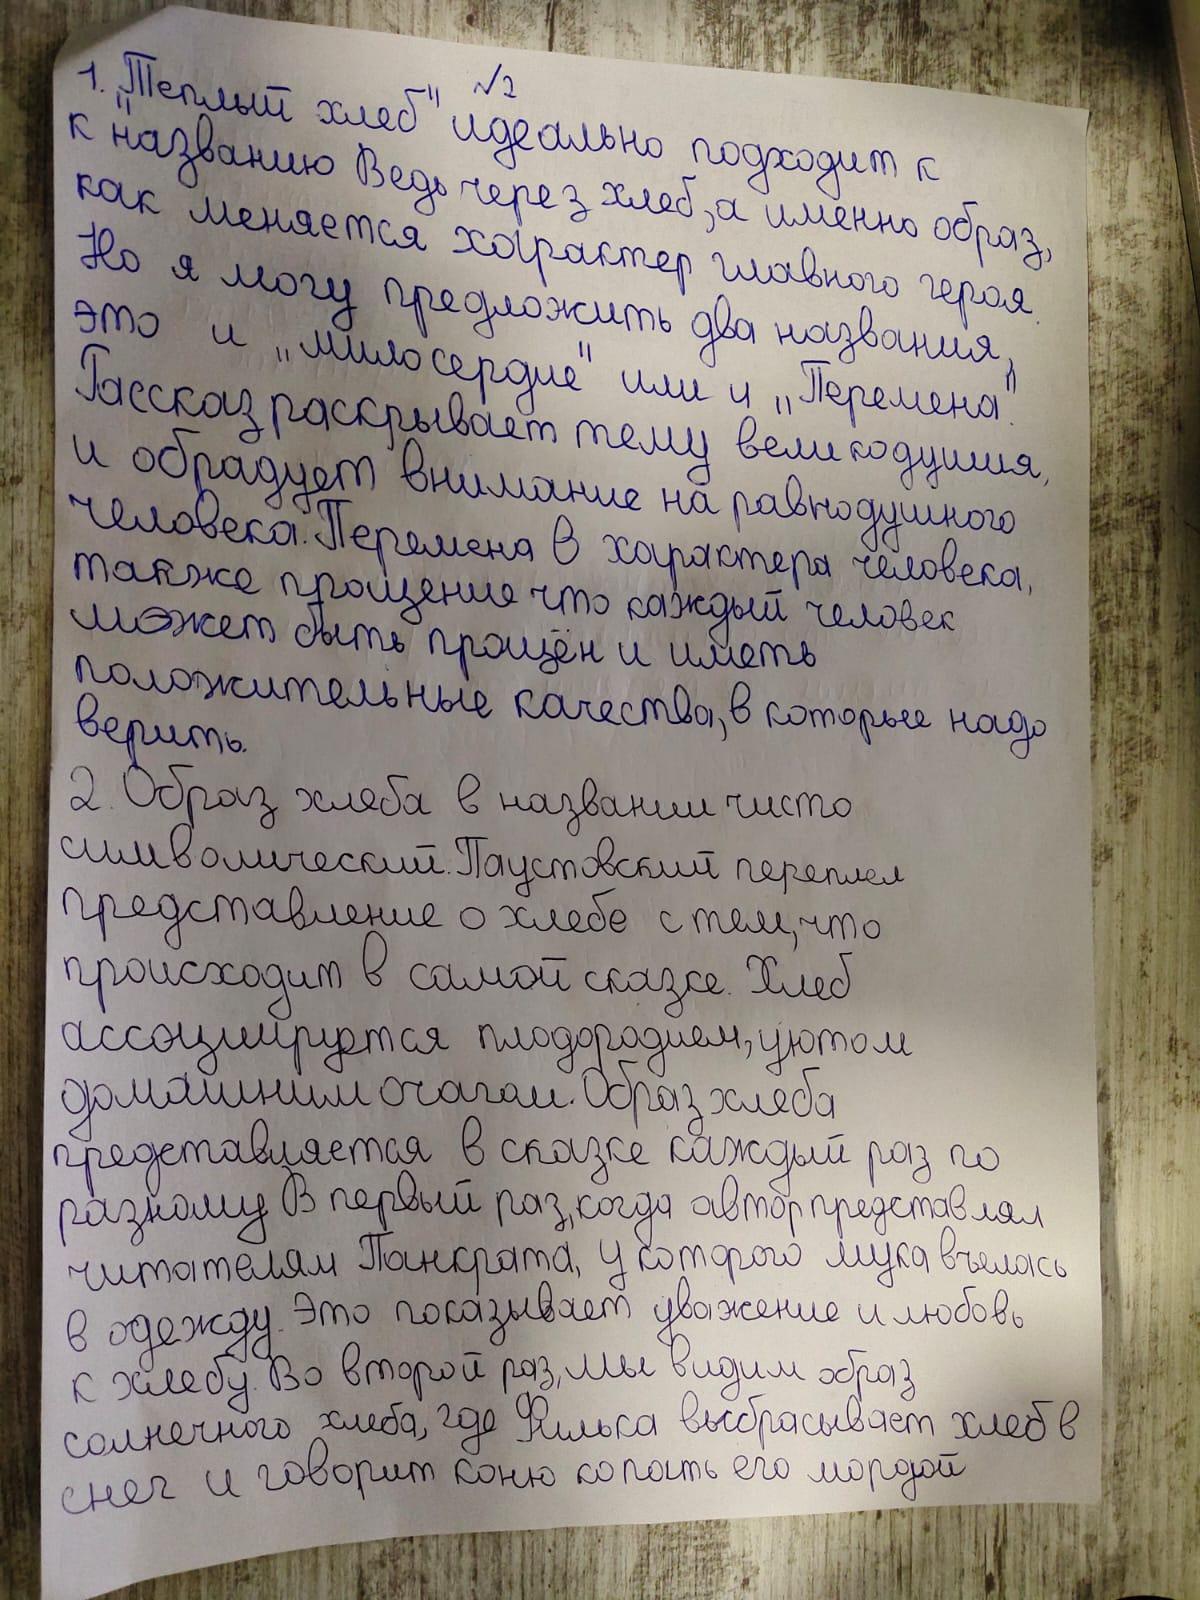 №2
1. „Теплый хлеб" идеально подходит к
к названию Ведь через хлеб, а именно образ,
как меняется характер главного героя.
Но я могу предложить два названия,
это и „милосердие" или и „Перемена".
Рассказ раскрывает тему великодушия,
и обрадует внимание на равнодушного
человека. Перемена в характера человека,
также прощение что каждый человек
может быть прощён и иметь
положительные качества, в которые надо
верить.
2. Образ хлеба в названии чисто
символический. Паустовский переплел
представление о хлебе с тем, что
происходит в самой сказке. Хлеб
ассоциируется плодородием, уютом
домашним очагам. Образ хлеба
представляется в сказке каждый раз по
разному В первый раз, когда автор представлял
читателям Панкрата, у которого мука въелась
в одежду. Это показывает уважение и любовь
к хлебу. Во второй раз, мы видим образ
солнечного хлеба, где Филька выбрасывает хлеб в
снег и говорит коню копать его мордой